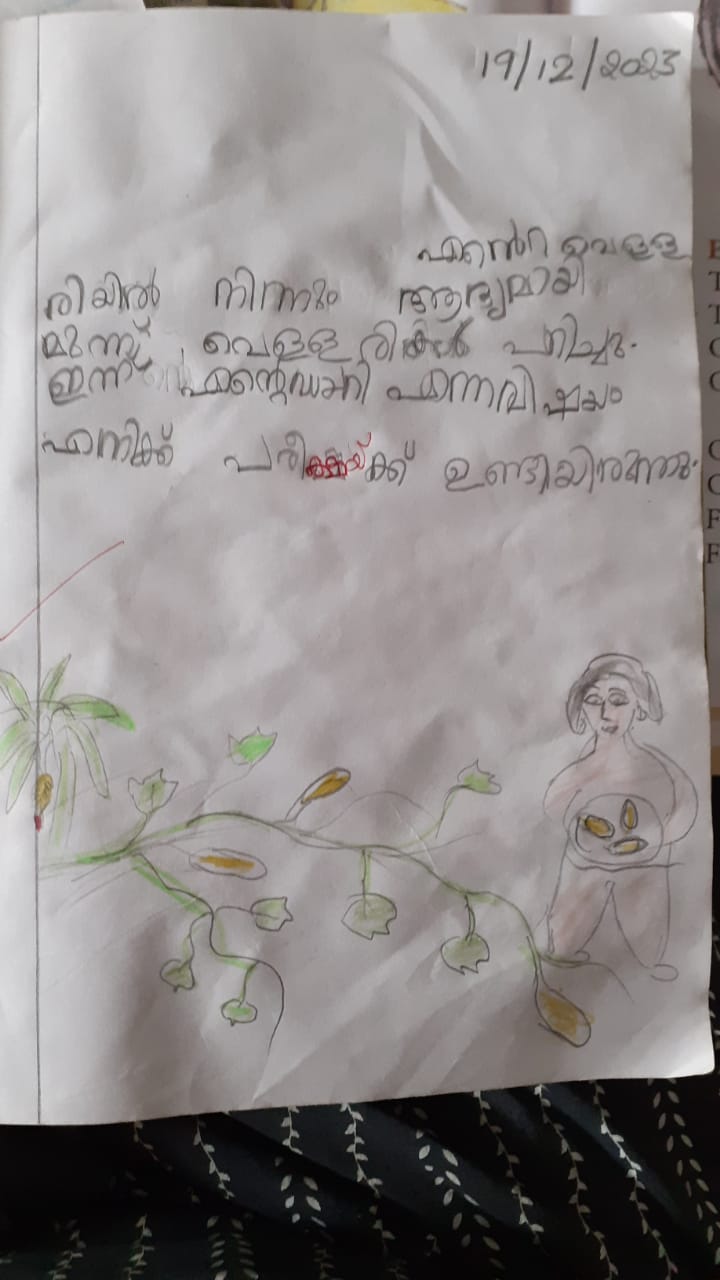 19/12/2023
എൻെറ വെള്ള
രിയിൽ നിന്നും ആദ്യമായി
മൂന്ന് വെള്ളരികൾ പറിച്ചു.
ഇന്ന് എന്റെഡയറി എന്നവിഷയം
എനിക്ക് പരീക്ഷയ്ക്ക് ഉണ്ടായിരുന്നു.